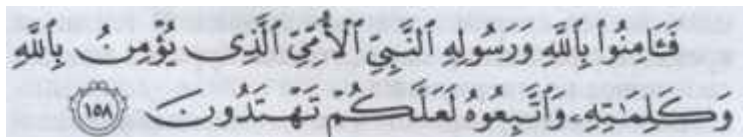 فَـَٔامِنُوا۟ بِٱللَّهِ وَرَسُولِهِ ٱلنَّبِىِّ ٱلْأُمِّىِّ ٱلَّذِى يُؤْمِنُ بِٱللَّهِ
وَكَلِمَـٰتِهِۦ وَٱتَّبِعُوهُ لَعَلَّكُمْ تَهْتَدُونَ ١٥٨